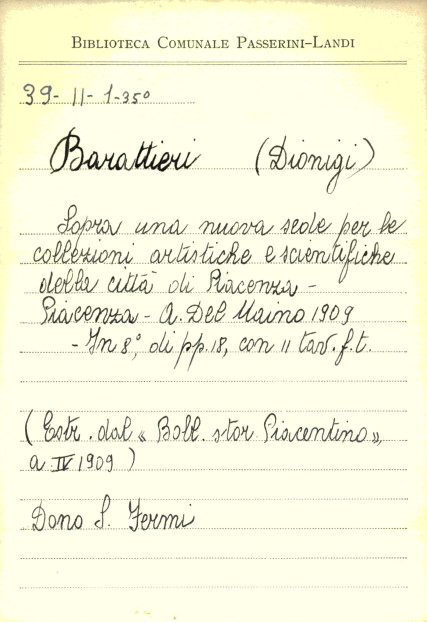 BIBLIOTECA COMUNALE PASSERINI-LANDI
39- II- 1-35°
Barattieri (Dionigi)
Sopra una nuova sede per le
collezioni artistiche e scientifiche
della città di Piacenza -
Piacenza - A. Del Maino 1909
- In 8°, di pp. 18, con 11 tav. f. t.
(Estr. dal « Boll. stor Piacentino »,
a IV 1909)
Dono S. Fermi